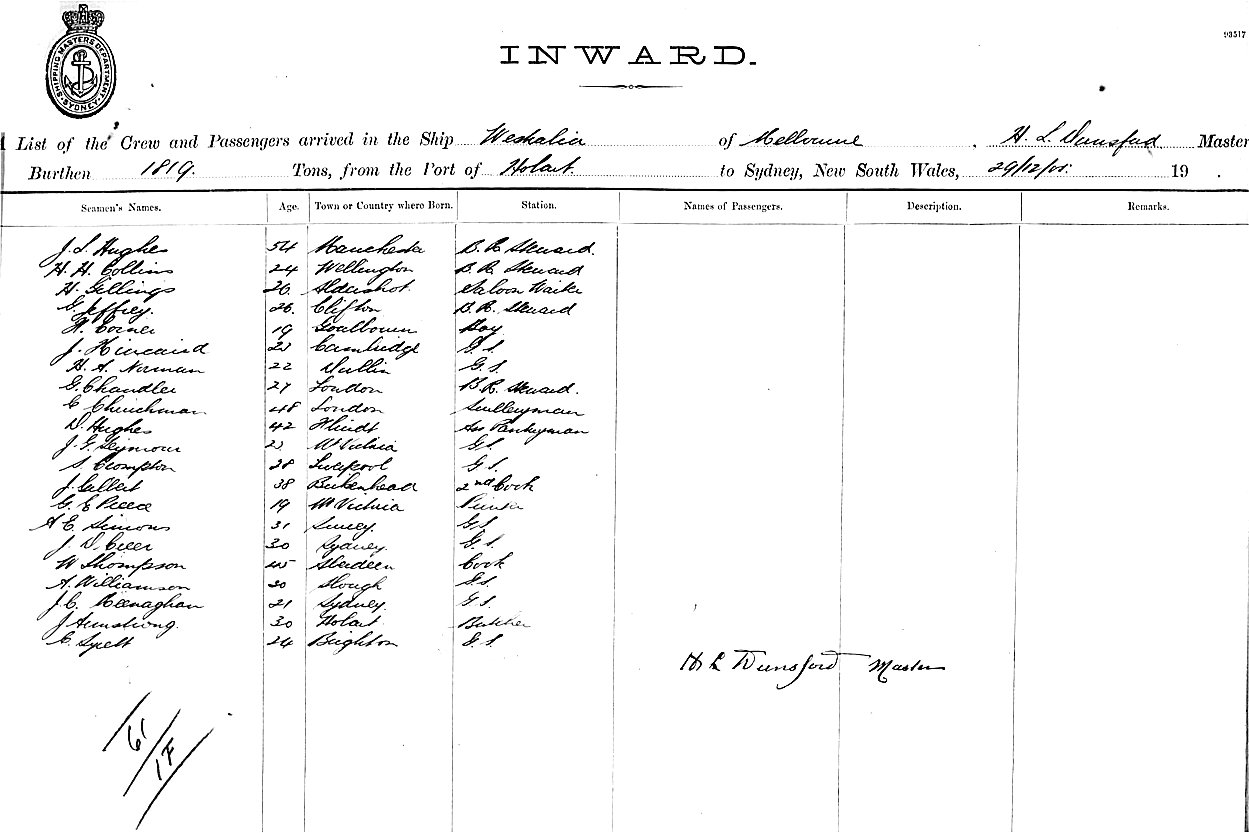 SHIPPING MASTERS DEPARTMENT SYDNEY
93517
INWARD.
List of the Crew and Passengers arrived in the Ship Westralia of Melbourne, H. L. Dunsford Master
Burthen 1819. Tons, from the Port of Hobart. to Sydney, New South Wales, 29/12/05. 19 .
Seamen's Names. Age. Town or Country where Born. Station. Names of Passengers. Description. Remarks.
J. S. Hughes 54 Manchester B. R. Steward.
H. H. Collins 24 Wellington B. R. Steward
H. Gellings 26. Aldershot. Saloon Waiter
G. Jeffrey. 26. Clifton B. R. Steward
Corner 19 Goulbourn Boy
J. Kincaird Cambridge G. S.
H. A. Norman 22 Dublin G. S.
G. Chandler 27 London B. R. Steward.
Churchman 48 London Sculleryman
D. Hughes 42 Ass Pantryman
J. G. Seymour Mt Victoria G. S.
S. Crompton Liverpool G. S.
J. Gilbert 38 Birkenhead 2nd Cook
G. E. Pierce 19 Mt Victoria
A. E. Simons 31 Surrey. G. S.
J. D. 30 Sydney. G. S.
W Thompson 45 Aberdeen Cook
A. Williamson 30 Slough G. S.
J. C. Heenaghan 21 Sydney. G. S.
J Armstrong. 30 Hobart Butcher
24 Brighton G. S.
H L Dunsford Master
61/